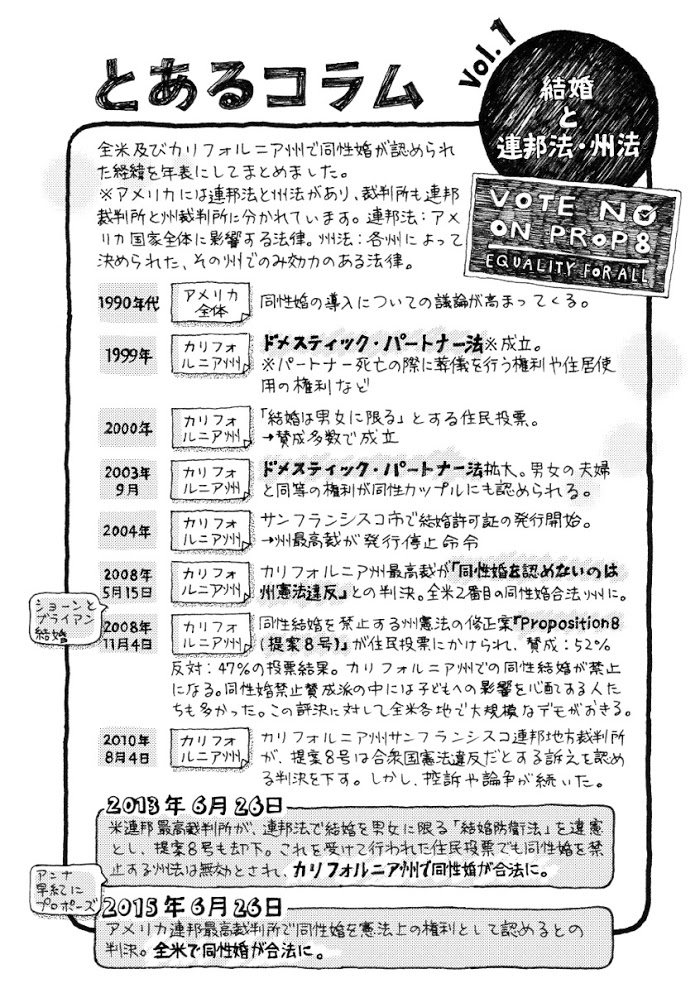 とあるコラム
Vol.1
結婚
と
連邦法・州法
VOTE NO
ON PROP8
EQUALITY FOR ALL
全米及びカリフォルニア州で同性婚が認められ
た経緯を年表にしてまとめました。
※アメリカには連邦法と州法があり、裁判所も連邦
裁判所と州裁判所に分かれています。連邦法：アメ
リカ国家全体に影響する法律。州法：各州によって
決められた、その州でのみ効力のある法律。
1990年代
アメリカ
全体
同性婚の導入についての議論が高まってくる。
1999年
カリフォ
ルニア州
ドメスティック・パートナー法※成立。
※パートナー死亡の際に葬儀を行う権利や住居使
用の権利など
2000年
カリフォ
ルニア州
「結婚は男女に限る」とする住民投票。
→賛成多数で成立
2003年
9月
カリフォ
ルニア州
ドメスティック・パートナー法拡大。男女の夫婦
と同等の権利が同性カップルにも認められる。
2004年
カリフォ
ルニア州
サンフランシスコ市で結婚許可証の発行開始。
→州最高裁が発行停止命令
2008年
5月15日
カリフォ
ルニア州
カリフォルニア州最高裁が「同性婚を認めないのは
州憲法違反」との判決。全米2番目の同性婚合法州に。
ショーンと
ブライアン
結婚
2008年
11月4日
カリフォ
ルニア州
同性結婚を禁止する州憲法の修正案『Proposition8
(提案8号)』が住民投票にかけられ、賛成：52%
反対：47%の投票結果。カリフォルニア州での同性結婚が禁止
になる。同性婚禁止賛成派の中には子どもへの影響を心配する人た
ちも多かった。この評決に対して全米各地で大規模なデモがおきる。
2010年
8月4日
カリフォ
ルニア州
カリフォルニア州サンフランシスコ連邦地方裁判所
が、提案8号は合衆国憲法違反だとする訴えを認め
る判決を下す。しかし、控訴や論争が続いた。
2013年6月26日
米連邦最高裁判所が、連邦法で結婚を男女に限る「結婚防衛法」を違憲
とし、提案8号も却下。これを受けて行われた住民投票でも同性婚を禁
止する州法は無効とされ、カリフォルニア州で同性婚が合法に。
アンナ
早紀に
プロポーズ
2015年6月26日
アメリカ連邦最高裁判所で同性婚を憲法上の権利として認めるとの
判決。全米で同性婚が合法に。